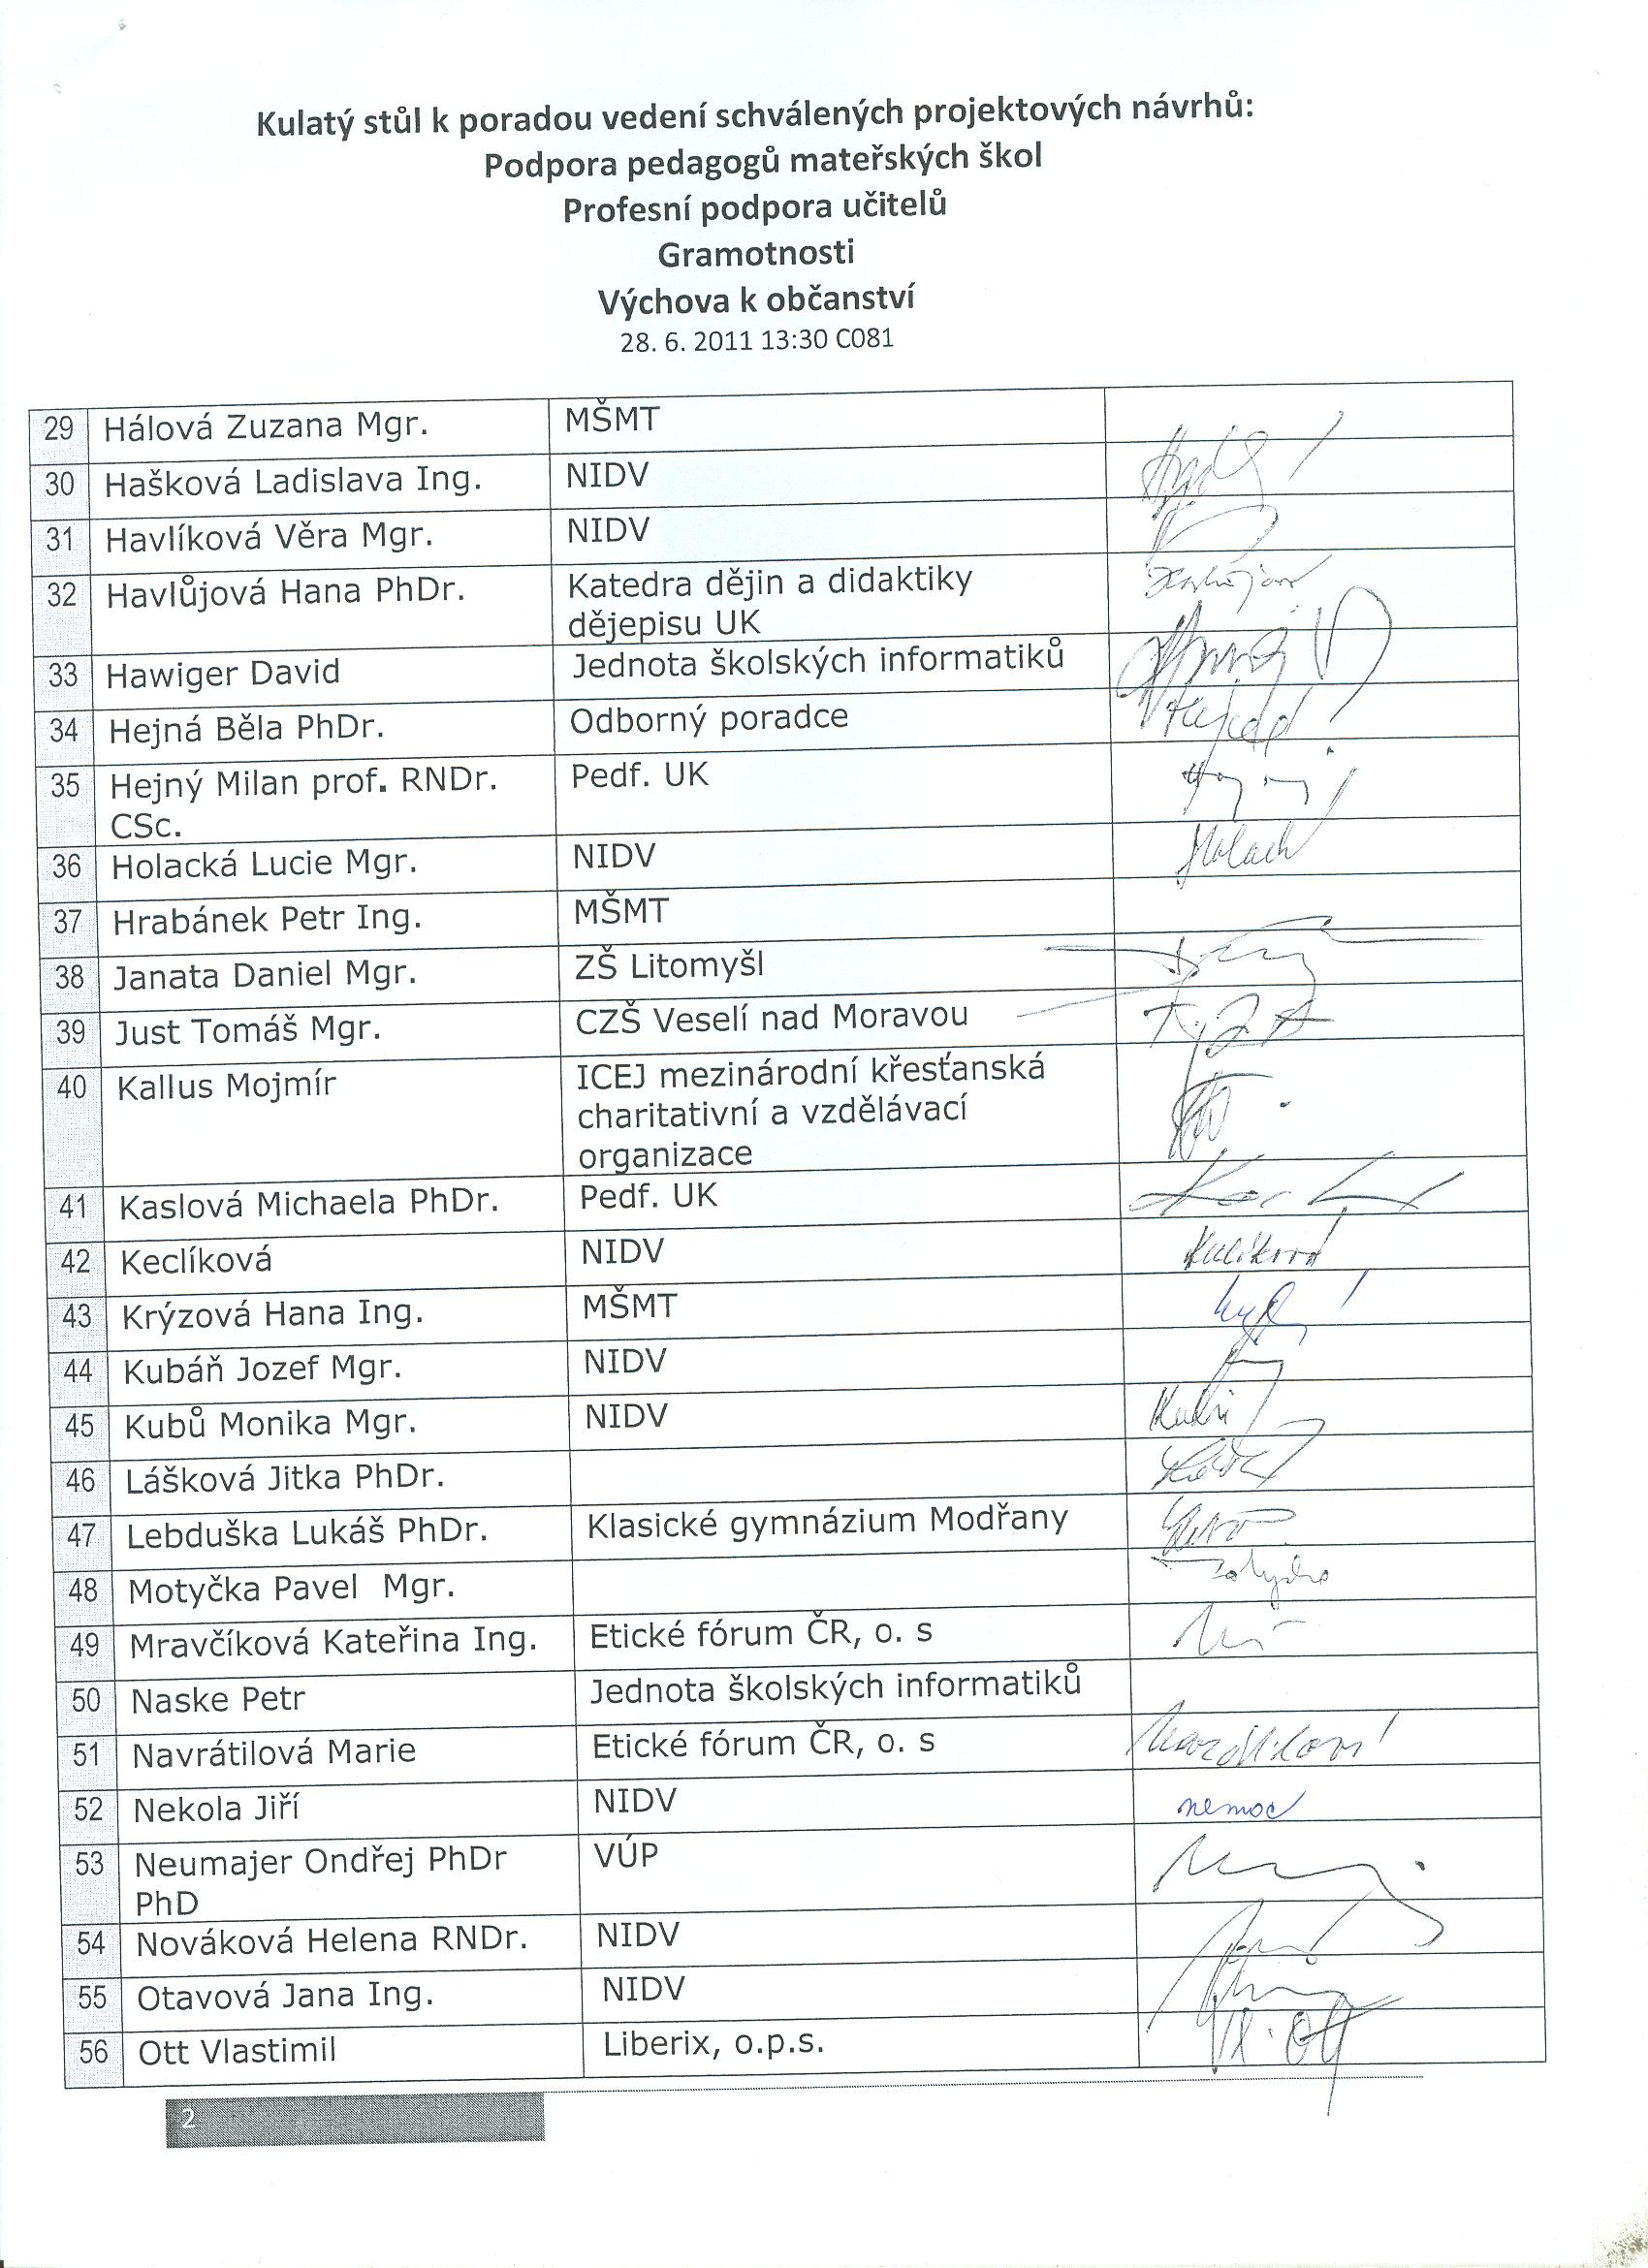 Kulatý stůl k poradou vedení schválených projektových návrhů:
Podpora pedagogů mateřských škol
Profesní podpora učitelů
Gramotnosti
Výchova k občanství
28. 6. 2011 13:30 C081
29 Hálová Zuzana Mgr. MŠMT
30 Hašková Ladislava Ing. NIDV
31 Havlíková Věra Mgr. NIDV
32 Havlůjová Hana PhDr. Katedra dějin a didaktiky
dějepisu UK
33 Hawiger David Jednota školských informatiků
34 Hejná Běla PhDr. Odborný poradce
35 Hejný Milan prof. RNDr. Pedf. UK
CSc.
36 Holacká Lucie Mgr. NIDV
37 Hrabánek Petr Ing. MŠMT
38 Janata Daniel Mgr. ZŠ Litomyšl
39 Just Tomáš Mgr. CZŠ Veselí nad Moravou
40 Kallus Mojmír ICEJ mezinárodní křesťanská
charitativní a vzdělávací
organizace
41 Kaslová Michaela PhDr. Pedf. UK
42 Keclíková NIDV
43 Krýzová Hana Ing. MŠMT
44 Kubáň Jozef Mgr. NIDV
45 Kubů Monika Mgr. NIDV
46 Lášková Jitka PhDr.
47 Lebduška Lukáš PhDr. Klasické gymnázium Modřany
48 Motyčka Pavel Mgr.
49 Mravčíková Kateřina Ing. Etické fórum ČR, o. s
50 Naske Petr Jednota školských informatiků
51 Navrátilová Marie Etické fórum ČR, o. s
52 Nekola Jiří NIDV nemoc
53 Neumajer Ondřej PhDr VÚP
PhD
54 Nováková Helena RNDr. NIDV
55 Otavová Jana Ing. NIDV
56 Ott Vlastimil Liberix, o.p.s. Vl. Ott
2